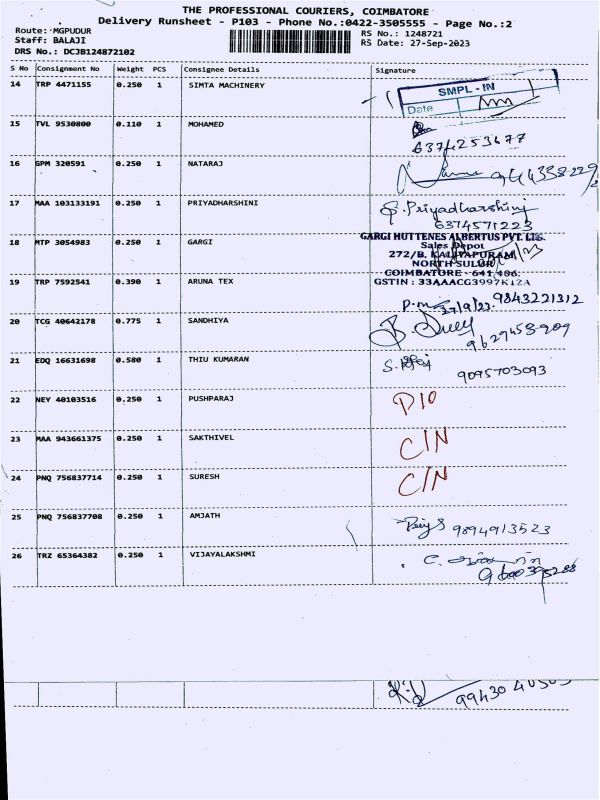 THE PROFESSIONAL COURIERS, COIMBATORE
Delivery Runsheet - P103 - Phone No.:0422-3505555 - Page No.:2
Route: MGPUDUR
Staff: BALAJI
DRS No.: DCJB124872102
RS No.: 1248721
RS Date: 27-Sep-2023
S No Consignment No Weight PCS Consignee Details Signature
14 TRP 4471155 0.250 1 SIMTA MACHINERY
SMPL-IN
Date
15 TVL 9530800 0.110 1 MOHAMED
6374253677
16 GPM 320591 0.250 1 NATARAJ
17 MAA 103133191 0.250 1 PRIYADHARSHINI
S.Priyadharshini
6374571223
18 MTP 3054983 0.250 1 GARGI
GARGI HUTTENES ALBERTUS PVT. LTD.
Sales Depot
272/B, KALIYAPURAM,
NORTH SULUR
COIMBATORE - 641 406.
GSTIN : 33AAACG3997K1ZA
19 TRP 7592541 0.390 1 ARUNA TEX
27/9/23 9843221312
20 TCG 40642178 0.775 1 SANDHIYA
9629458909
21 EDQ 16631698 0.580 1 THIU KUMARAN
9095703093
22 NEY 40103516 0.250 1 PUSHPARAJ
D10
23 MAA 943661375 0.250 1 SAKTHIVEL
C/N
24 PNQ 756837714 0.250 1 SURESH
C/N
25 PNQ 756837708 0.250 1 AMJATH
9894913523
26 TRZ 65364382 0.250 1 VIJAYALAKSHMI